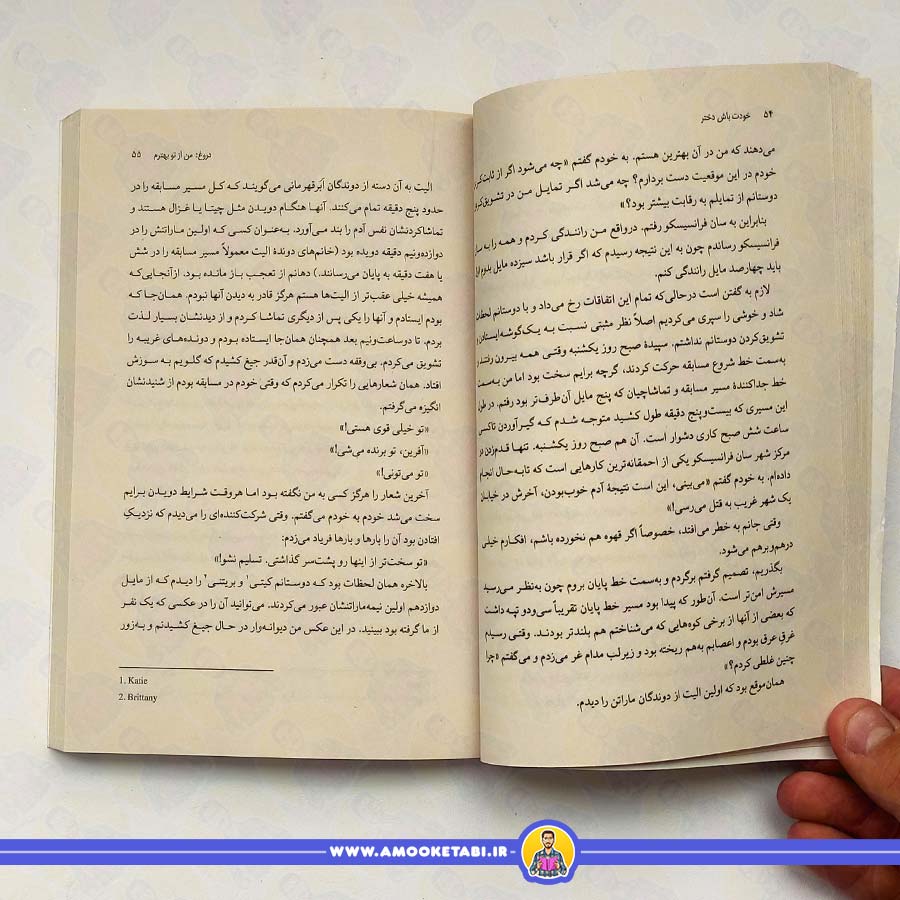 ۵۴ خودت باش دختر
می‌دهند که من در آن بهترین هستم. به خودم گفتم «چه می‌شود اگر از ثابت‌کردن
خودم در این موقعیت دست بردارم؟ چه می‌شد اگر تمایل من در تشویق‌کردن
دوستانم از تمایلم به رقابت بیشتر بود؟»
بنابراین به سان فرانسیسکو رفتم. درواقع من رانندگی کردم و همه را به سان
فرانسیسکو رساندم چون به این نتیجه رسیدم که اگر قرار باشد سیزده مایل بدوم
باید چهارصد مایل رانندگی کنم.
لازم به گفتن است درحالی‌که تمام این اتفاقات رخ می‌داد و با دوستانم لحظات
شاد و خوشی را سپری می‌کردیم اصلاً نظر مثبتی نسبت به یک‌گوشه‌ایستادن و
تشویق‌کردن دوستانم نداشتم. سپیدهٔ صبح روز یکشنبه وقتی همه بیرون رفتند و
به‌سمت خط شروع مسابقه حرکت کردند، گرچه برایم سخت بود اما من به‌سمت
خط جداکنندهٔ مسیر مسابقه و تماشاچیان که پنج مایل آن‌طرف‌تر بود رفتم. در طول
این مسیری که بیست‌وپنج دقیقه طول کشید متوجه شدم که گیرآوردن تاکسی
ساعت شش صبح کاری دشوار است. آن هم صبح روز یکشنبه. تنها قدم‌زدن در
مرکز شهر سان فرانسیسکو یکی از احمقانه‌ترین کارهایی است که تابه‌حال انجام
داده‌ام. به خودم گفتم «می‌بینی، این است نتیجهٔ آدم خوب‌بودن، آخرش در خیابان
یک شهر غریب به قتل می‌رسی!»
وقتی جانم به خطر می‌افتد، خصوصاً اگر قهوه هم نخورده باشم، افکارم خیلی
درهم‌وبرهم می‌شود.
بگذریم، تصمیم گرفتم برگردم و به‌سمت خط پایان بروم چون به‌نظر می‌رسید
مسیرش امن‌تر است. آن‌طور که پیدا بود مسیر خط پایان تقریباً سی‌ودو تپه داشت
که بعضی از آنها از برخی کوه‌هایی که می‌شناختم هم بلندتر بودند. وقتی رسیدم
غرقِ عرق بودم و اعصابم به‌هم ریخته بود و زیرلب مدام غر می‌زدم و می‌گفتم «چرا
چنین غلطی کردم؟»
همان‌موقع بود که اولین الیت از دوندگان ماراتن را دیدم.
دروغ: من از تو بهترم ۵۵
الیت به آن دسته از دوندگان ابَرقهرمانی می‌گویند که کل مسیر مسابقه را در
حدود پنج دقیقه تمام می‌کنند. آنها هنگام دویدن مثل چیتا یا غزال هستند و
تماشاکردنشان نفس آدم را بند می‌آورد. به‌عنوان کسی که اولین ماراتنش را در
دوازده‌ونیم دقیقه دویده بود (خانم‌های دوندهٔ الیت معمولاً مسیر مسابقه را در شش
یا هفت دقیقه به پایان می‌رسانند.) دهانم از تعجب باز مانده بود. ازآنجایی‌که
همیشه خیلی عقب‌تر از الیت‌ها هستم هرگز قادر به دیدن آنها نبودم. همان‌جا که
بودم ایستادم و آنها را یکی پس از دیگری تماشا کردم و از دیدنشان بسیار لذت
بردم. تا دوساعت‌ونیم بعد همچنان همان‌جا ایستاده بودم و دونده‌های غریبه را
تشویق می‌کردم. بی‌وقفه دست می‌زدم و آن‌قدر جیغ کشیدم که گلویم به سوزش
افتاد. همان شعارهایی را تکرار می‌کردم که وقتی خودم در مسابقه بودم از شنیدنشان
انگیزه می‌گرفتم.
«تو خیلی قوی هستی!»
«آفرین، تو برنده می‌شی!»
«تو می‌تونی!»
آخرین شعار را هرگز کسی به من نگفته بود اما هروقت شرایط دویدن برایم
سخت می‌شد خودم به خودم می‌گفتم. وقتی شرکت‌کننده‌ای را می‌دیدم که نزدیکِ
افتادن بود آن را بارها و بارها فریاد می‌زدم:
«تو سخت‌تر از اینها رو پشت‌سر گذاشتی. تسلیم نشو!»
بالاخره همان لحظات بود که دوستانم کیتی۱ و بریتنی۲ را دیدم که از مایل
دوازدهم اولین نیمه‌ماراتنشان عبور می‌کردند. می‌توانید آن را در عکسی که یک نفر
از ما گرفته بود ببینید. در این عکس من دیوانه‌وار در حال جیغ کشیدنم و به‌زور
1. Katie
2. Brittany
WWW.AMOOKETABI.IR